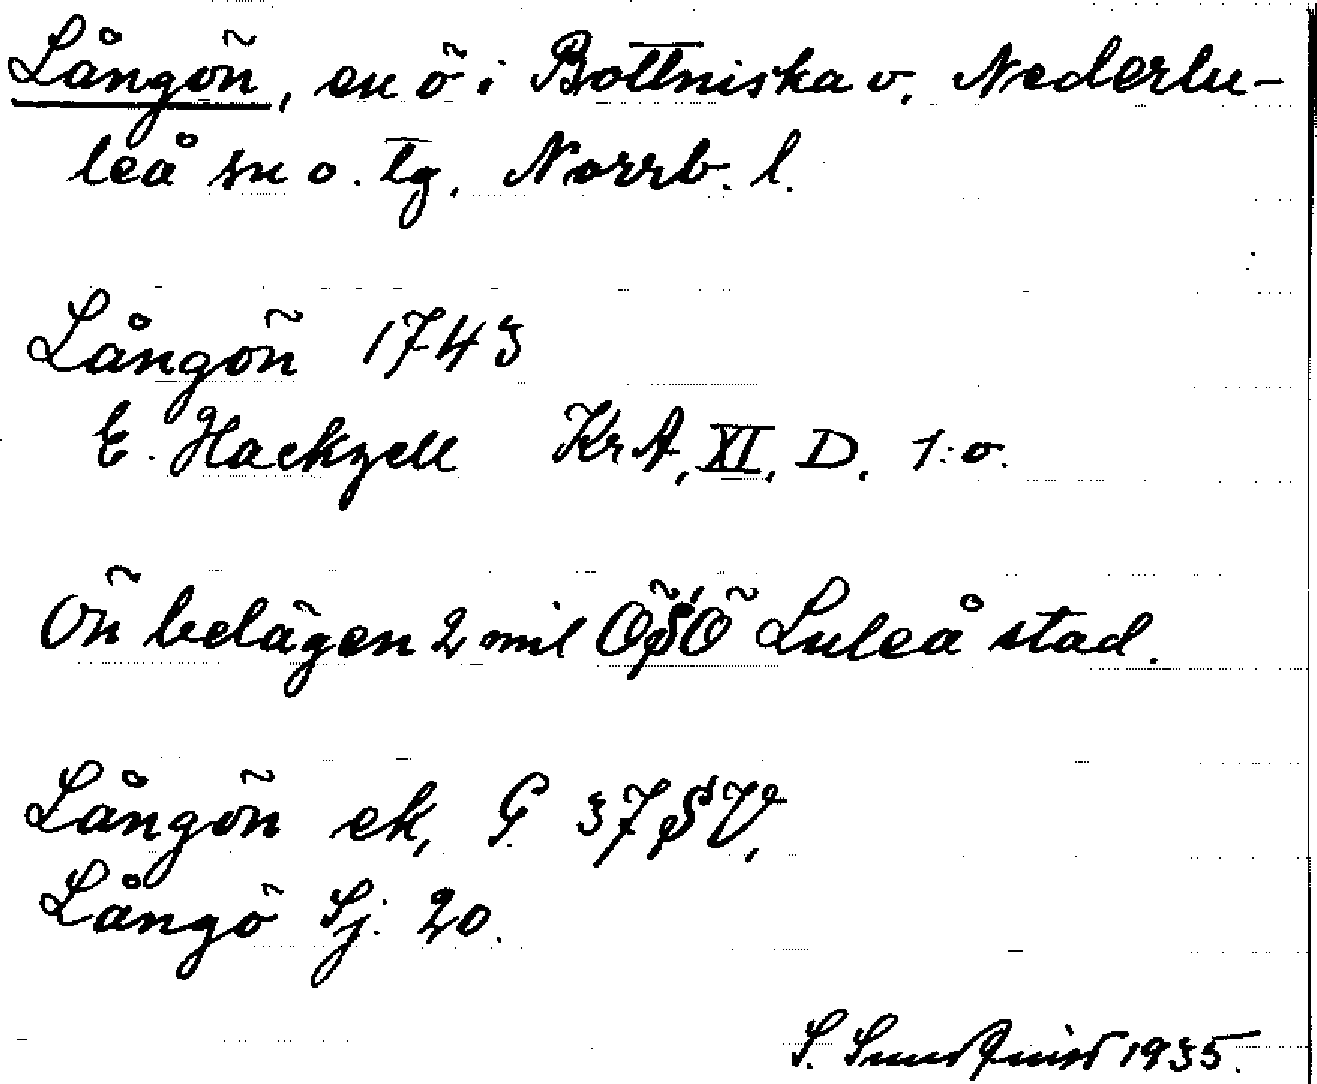 Långön, en ö i Bottniska v. Nederlu-
leå sn o. tg. Norrb. l.
Långön 1743
E. Hackzell KrA, XI, D. 1:o.
Ön belägen 2 mil ÖSÖ Luleå stad.
Långön ek, G. 37 SV,
Långö Sj. 20.
S. Sundqvist 1935.